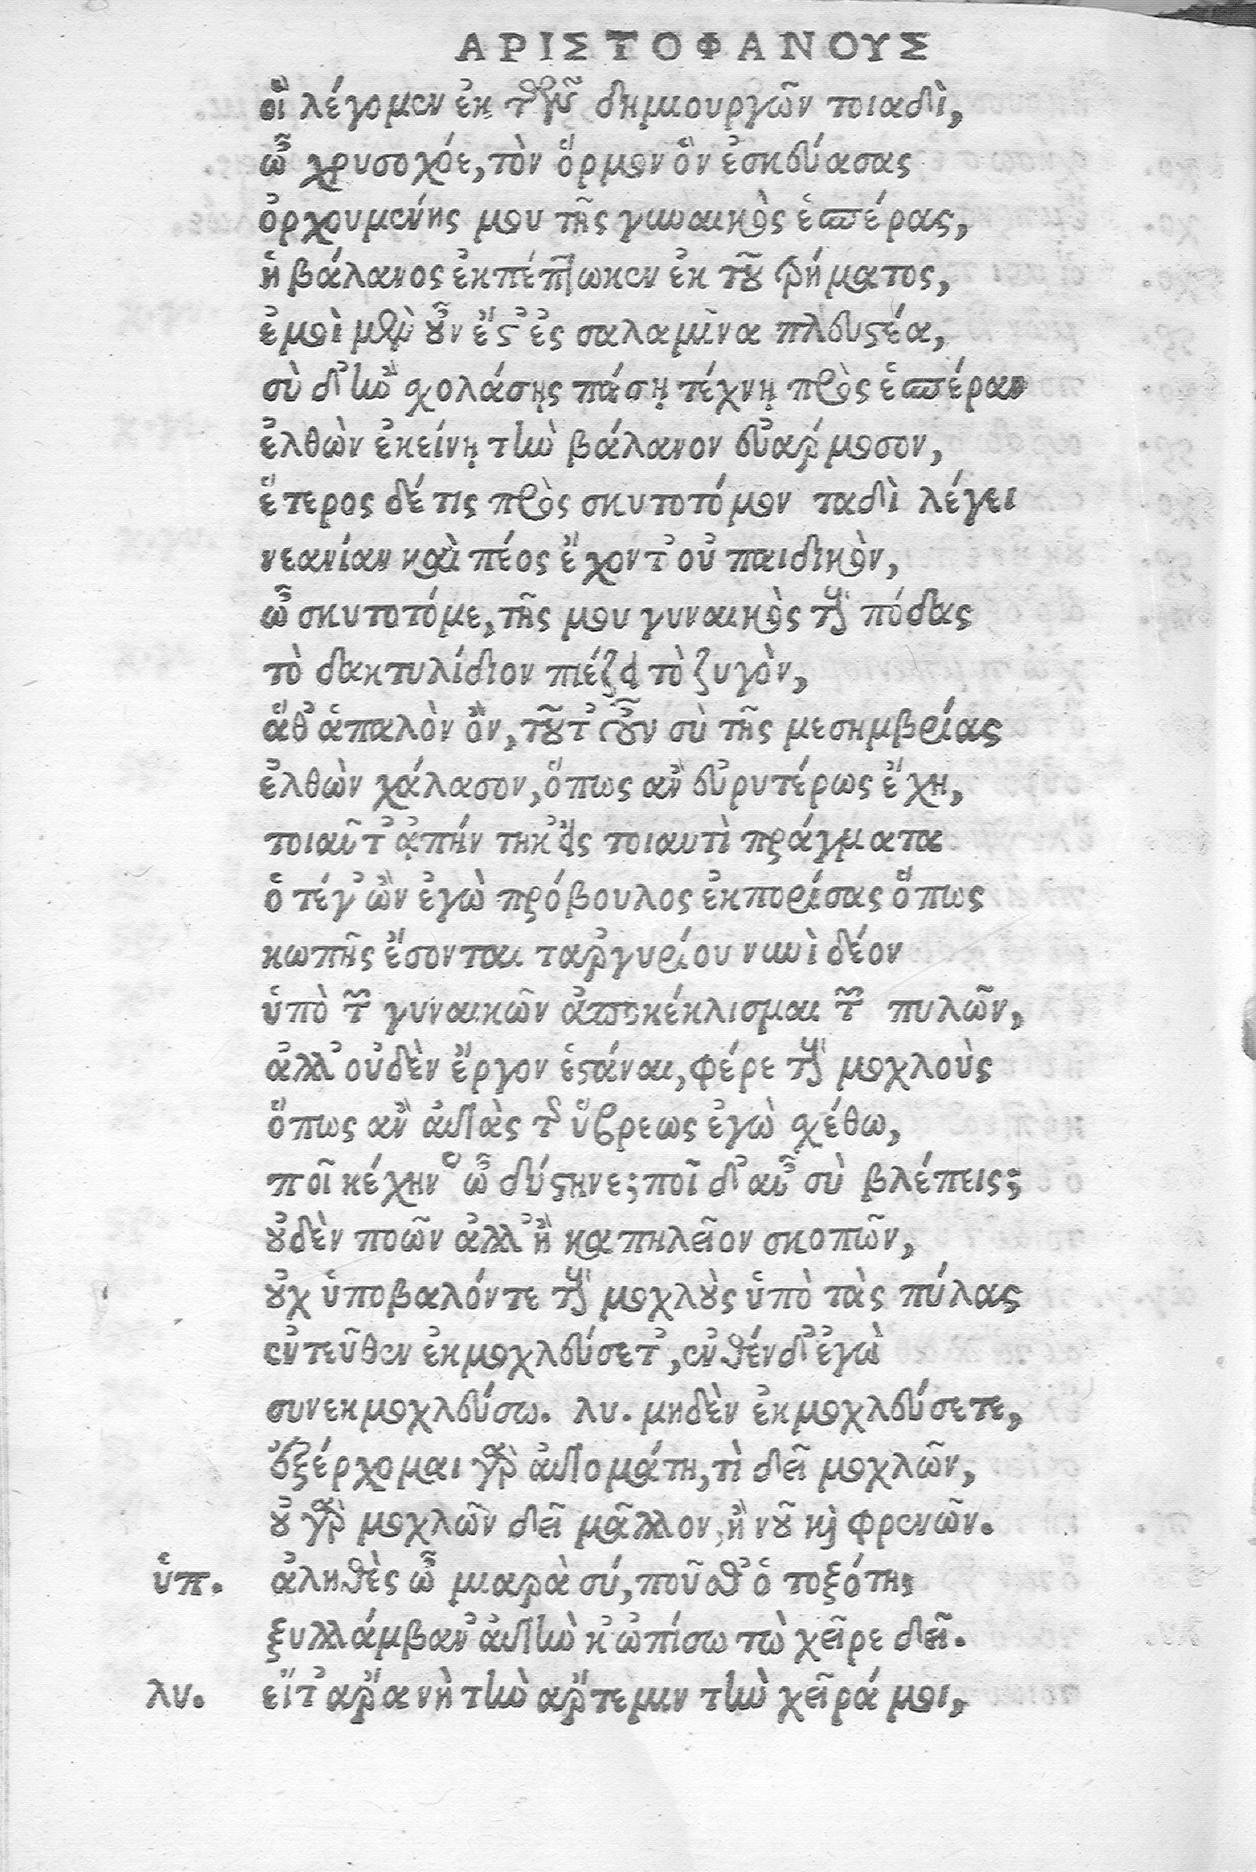 ΑΡΙΣΤΟΦΑΝΟΥΣ
οἳ λέγομεν ἐκ τῶν δημιουργῶν τοιαδὶ,
ὦ χρυσοχόε, τὸν ὅρμον ὃν ἐσκεύασας
ὀρχουμένης μου τῆς γυναικὸς ἑσπέρας,
ἡ βάλανος ἐκπέπτωκεν ἐκ τοῦ τρήματος,
ἐμοὶ μὲν οὖν ἔστ' ἐς σαλαμῖνα πλευστέα,
σὺ δ' ἢν σχολάσῃς πάσῃ τέχνῃ πρὸς ἑσπέραν
ἐλθὼν ἐκείνῃ τὴν βάλανον εὐάρμοσον,
ἕτερος δέ τις πρὸς σκυτοτόμον ταδὶ λέγει
νεανίαν καὶ πέος ἔχοντ' οὐ παιδικὸν,
ὦ σκυτοτόμε, τῆς μου γυναικὸς τοὺς πόδας
τὸ δακτυλίδιον πιέζει τὸ ζυγὸν,
ἅθ' ἁπαλὸν ὂν, τοῦτ' οὖν σὺ τῆς μεσημβρίας
ἐλθὼν χάλασον, ὅπως ἂν εὐρυτέρως ἔχη,
τοιαῦτ' ἀπήντηκ' εἰς τοιαυτὶ πράγματα
ὅτέ γ' ὢν ἐγὼ πρόβουλος ἐκπορίσας ὅπως
κωπῆς ἔσονται ταργυρίου νυνὶ δέον
ὑπὸ τῶν γυναικῶν ἀποκέκλισμαι τῶν πυλῶν,
ἀλλ' οὐδὲν ἔργον ἑστάναι, φέρε τοὺς μοχλοὺς
ὅπως ἂν αὐτὰς τῆς ὕβρεως ἐγὼ σχέθω,
ποῖ κέχηνας ὦ δύστηνε; ποῖ δ' αὖ σὺ βλέπεις;
οὐδὲν ποῶν ἀλλ' ἢ καπηλεῖον σκοπῶν,
οὐχ ὑποβαλόντε τοὺς μοχλοὺς ὑπὸ τὰς πύλας
ἐντεῦθεν ἐκμοχλεύσετ', ἐνθένδ' ἐγὼ
συνεκμοχλεύσω. λυ. μηδὲν ἐκμοχλεύσετε,
ἐξέρχομαι γὰρ αὐτομάτη, τὶ δεῖ μοχλῶν,
οὐ γὰρ μοχλῶν δεῖ μᾶλλον, ἢ νοῦ καὶ φρενῶν.
ὑπ. ἀληθὲς ὦ μιαρὰ σύ, ποῦ σθ' ὁ τοξότης
ξυλλάμβαν' αὐτὴν κ' ὠπίσω τὼ χεῖρε δεῖ.
λυ. εἴτ' ἄρα νὴ τὴν ἄρτεμιν τὴν χεῖρά μοι,